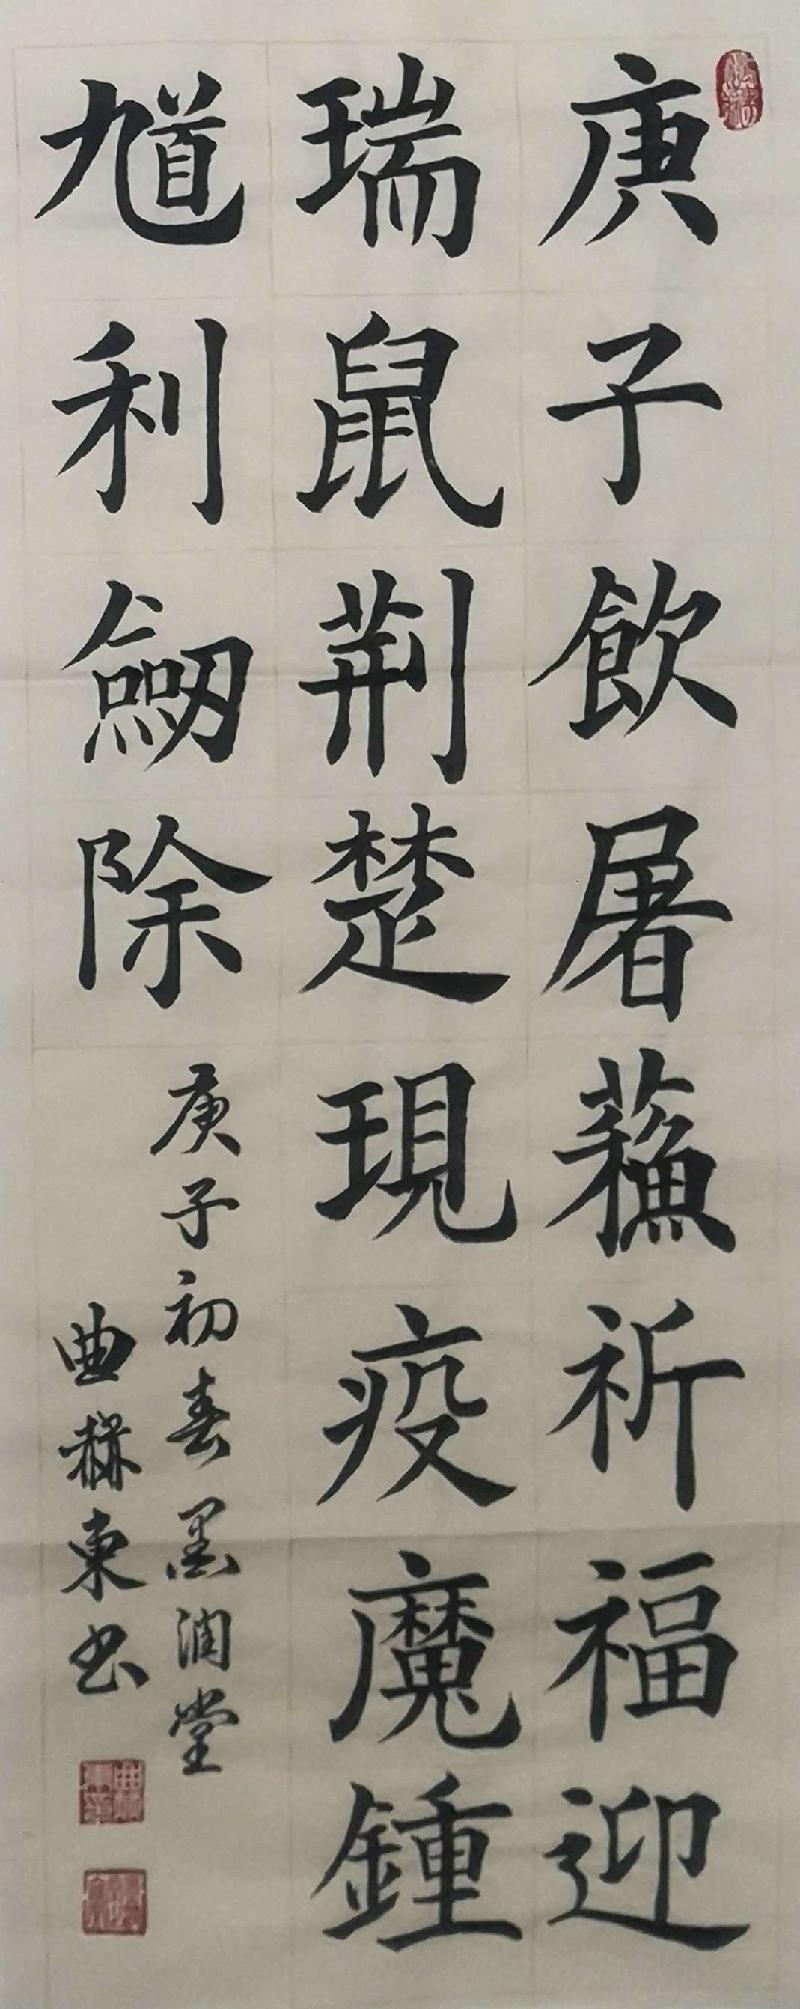 庚子飲屠蘓祈福迎
瑞鼠荆楚現疫魔鍾
馗利劔除
庚子初春墨润堂
曲赫東书